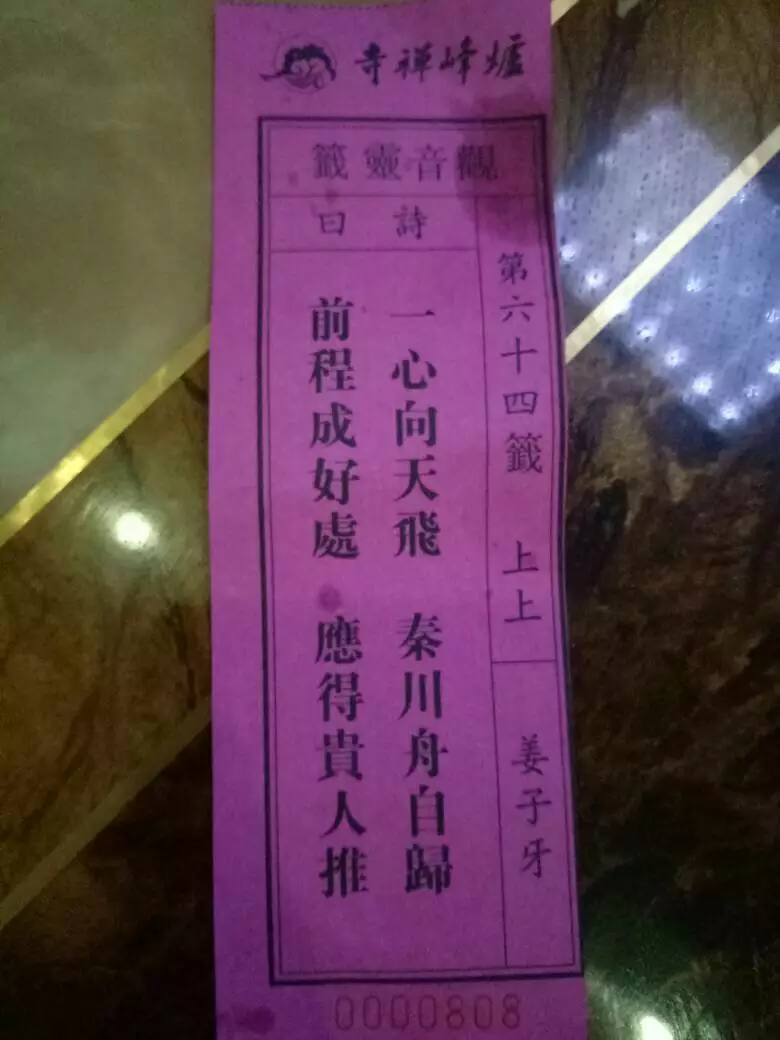 爐峰禪寺
觀音靈籤
第六十四籤 上上
姜子牙
詩曰
一心向天飛 秦川舟自歸
前程成好處 應得貴人推
0000808